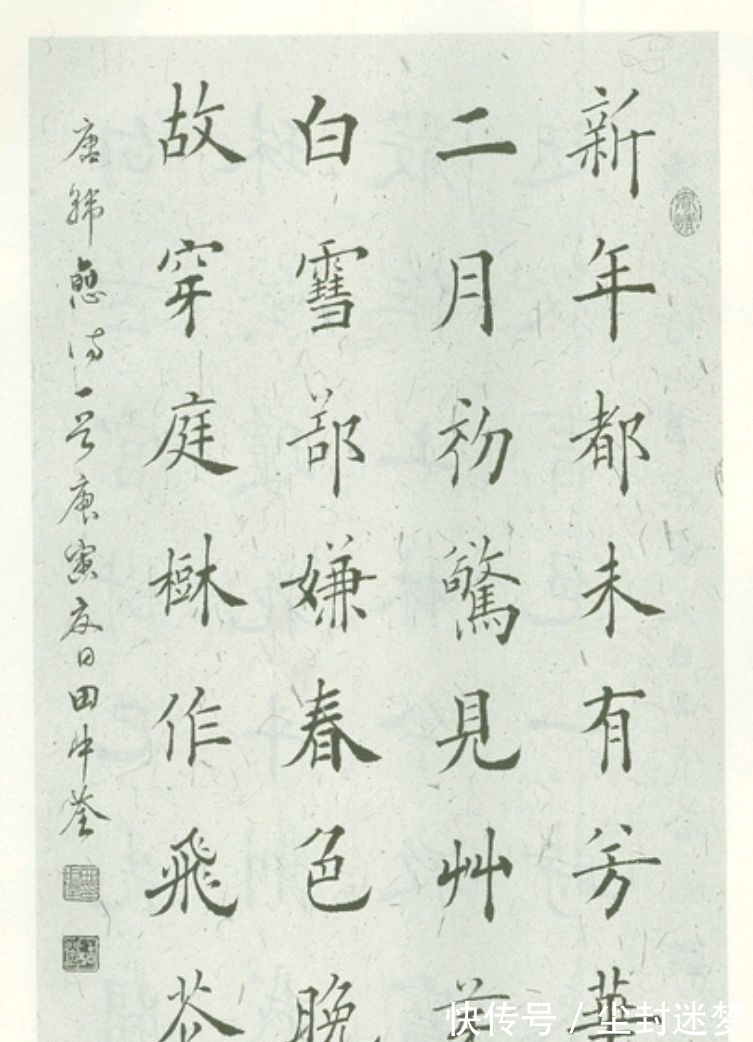 新年都未有芳華
二月初驚見艸芽
白雪郤嫌春色晚
故穿庭樹作飛花
唐韓愈诗一首庚寅夏日田中荃
快传号 / 尘封迷梦